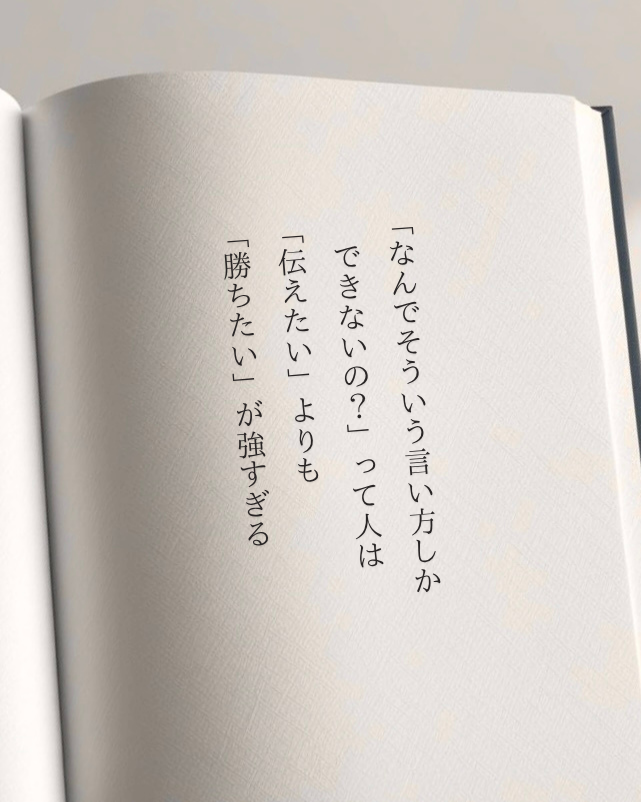 「なんでそういう言い方しか
できないの？」って人は
「伝えたい」よりも
「勝ちたい」が強すぎる